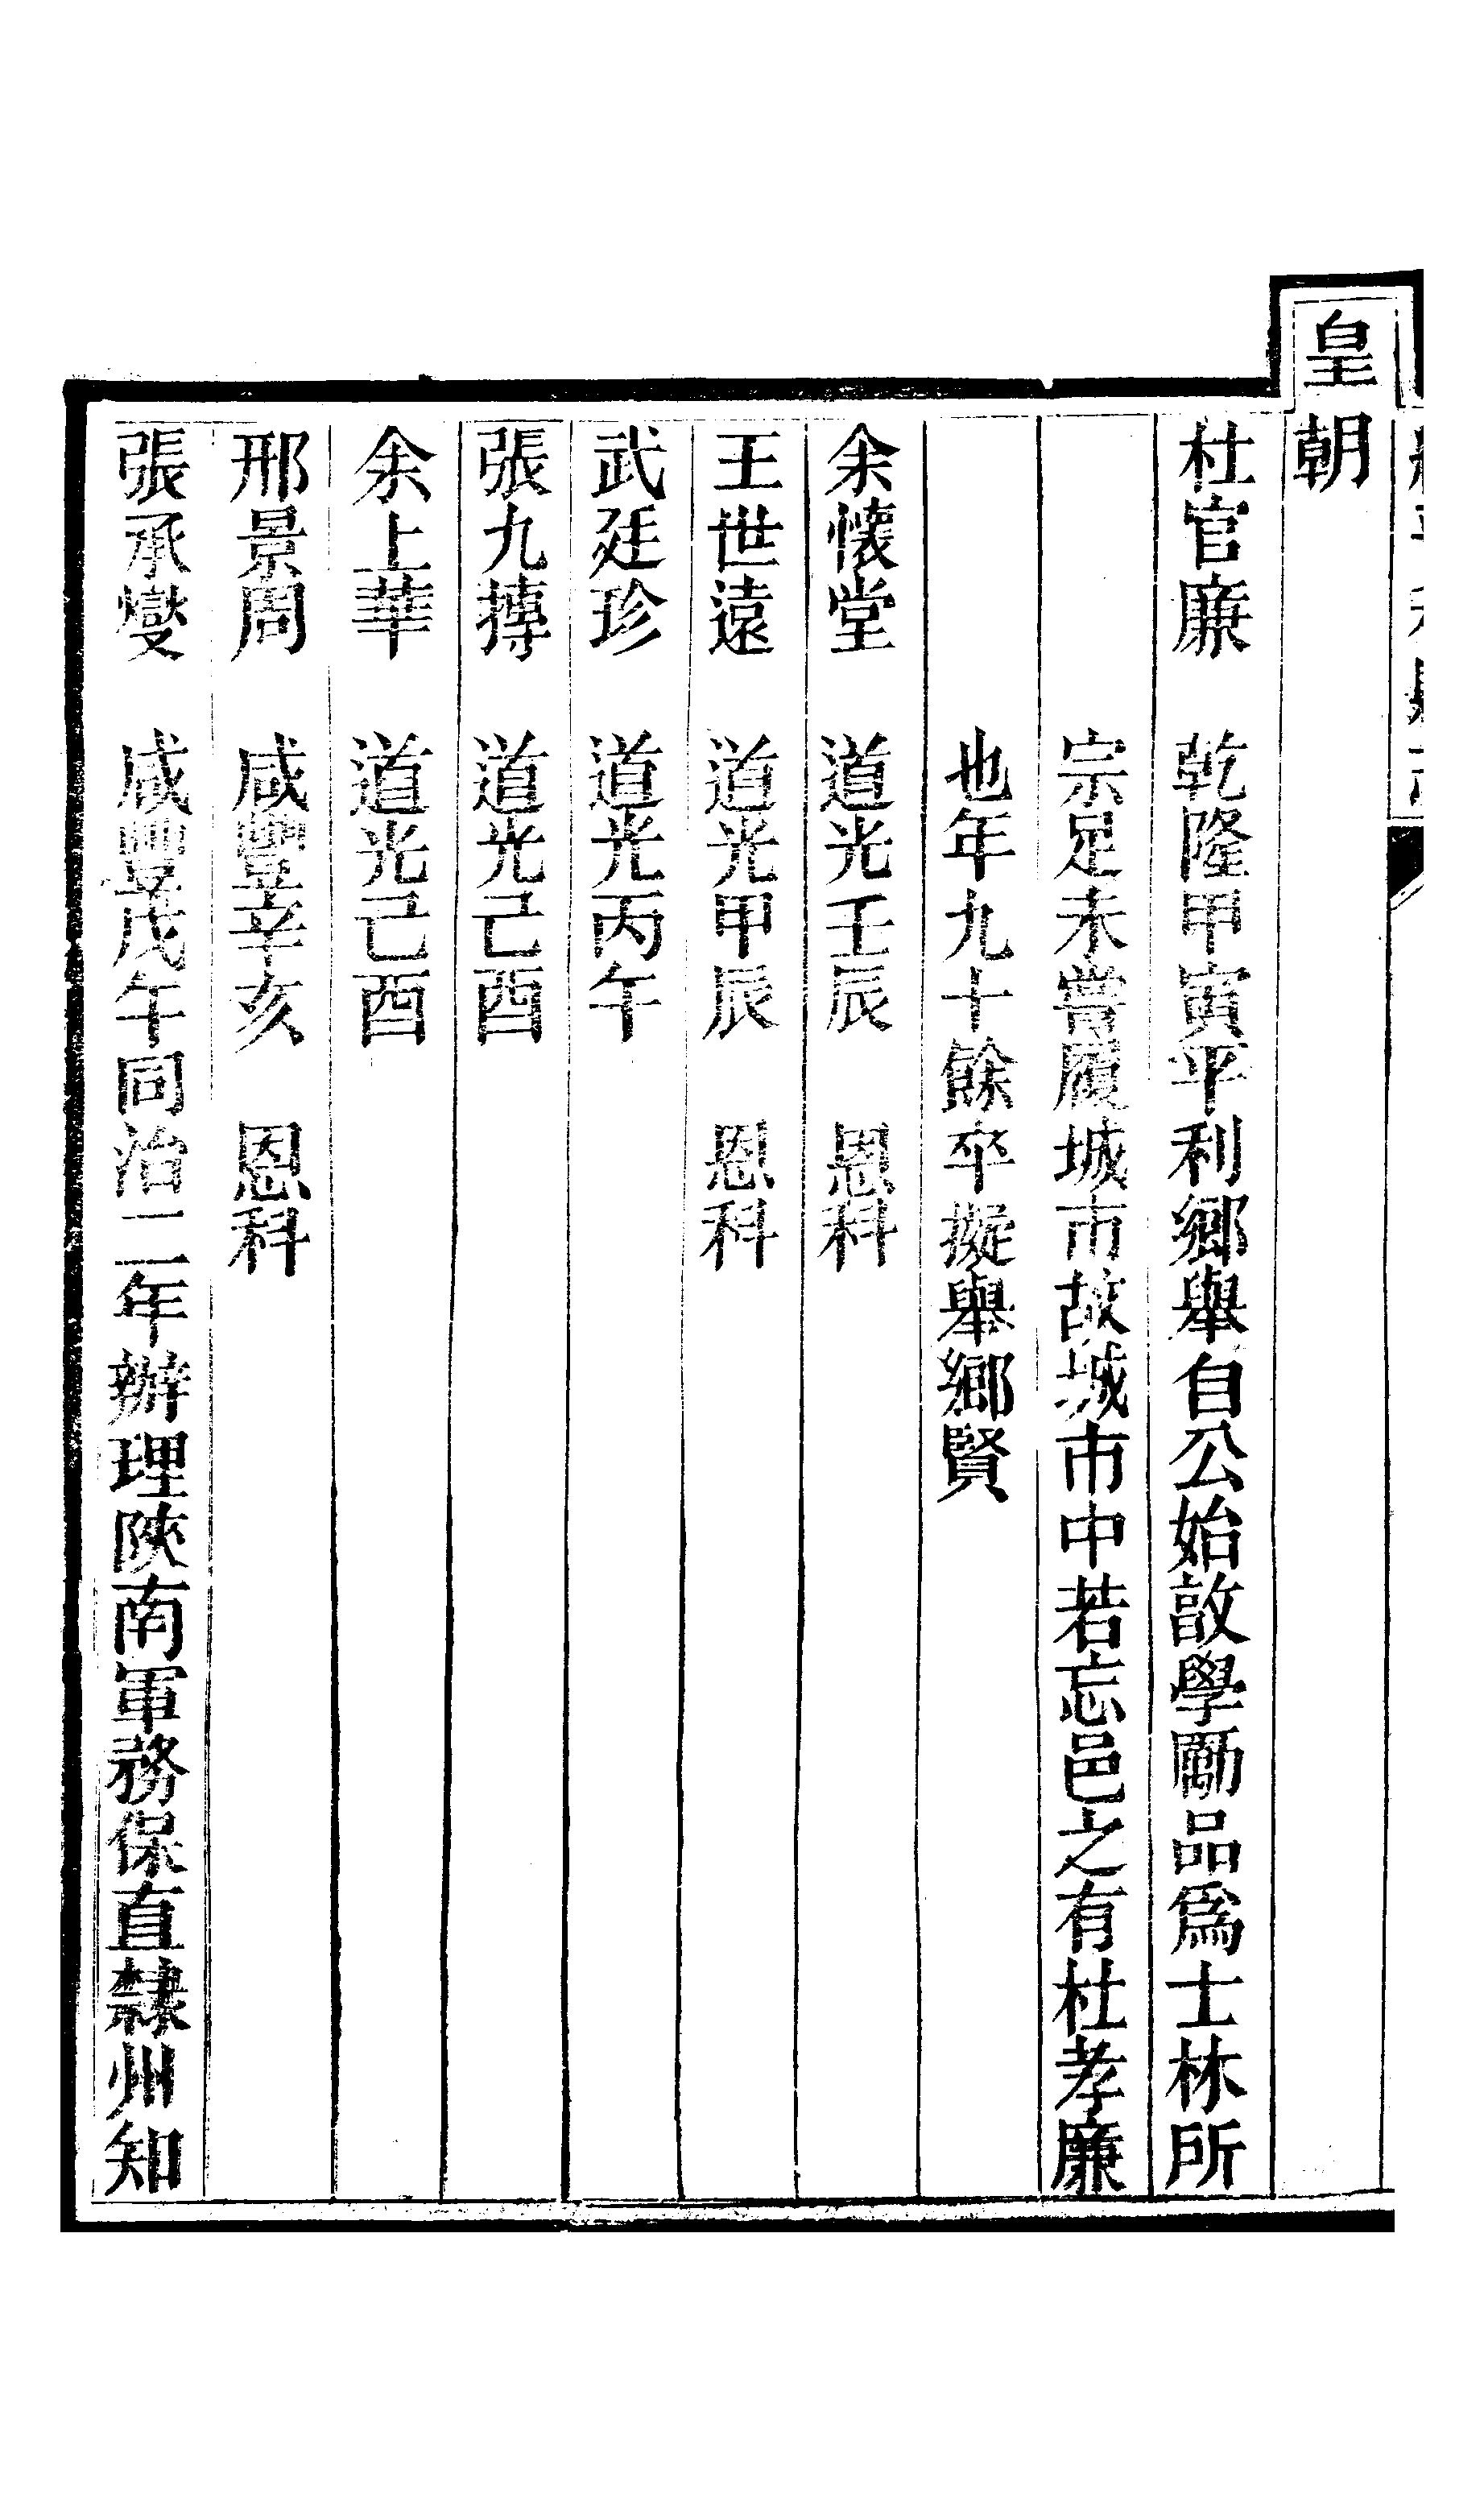 皇朝
杜官廉　乾隆甲寅平利鄉舉自公始敦學勵品爲士林所
宗足未嘗履城市故城市中若忘邑之有杜孝廉
也年九十餘卒擬舉鄉賢
余懷堂　道光壬辰　恩科
王世遠　道光甲辰　恩科
武廷珍　道光丙午
張九摶　道光己酉
余上華　道光己酉
邢景周　咸豐辛亥　恩科
張承燮　咸豐戊午同治二年辦理陝南軍務保直隸州知